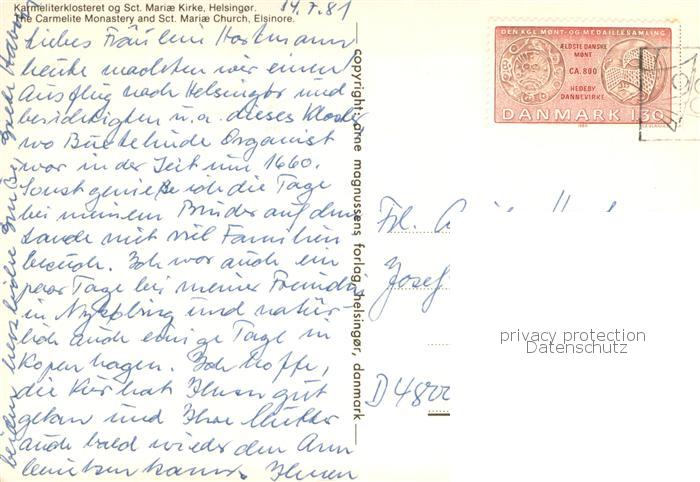 Karmeliterklosteret og Sct. Mariæ Kirke, Helsingør.
The Carmelite Monastery and Sct. Mariæ Church, Elsinore.
14.7.81
Liebes Fräulein Hartmann
heute machten wir einen
Ausflug nach Helsingør und
besichtigten u.a. dieses Kloster
wo Buxtehude Organist
war in der Zeit um 1660.
Sonst genieße ich die Tage
bei meinem Bruder auf dem
Lande mit viel Familien
besuch. Ich war auch ein
paar Tage bei meiner Freundin
in Nykøbing und natür-
lich auch einige Tage in
Kopenhagen. Ich hoffe,
die Kur hat Ihnen gut
getan und Ihre Mutter
auch bald wieder den Arm
benutzen kann. Ihnen
beiden herzliche Grüße
copyright: arne magnussens forlag, helsingør, danmark
DEN KGL. MØNT- OG MEDAILLESAMLING
ÆLDSTE DANSKE
MØNT
CA. 800
HEDEBY
DANNEVIRKE
DANMARK 130
Frl.
Josef
D 48
privacy protection
Datenschutz